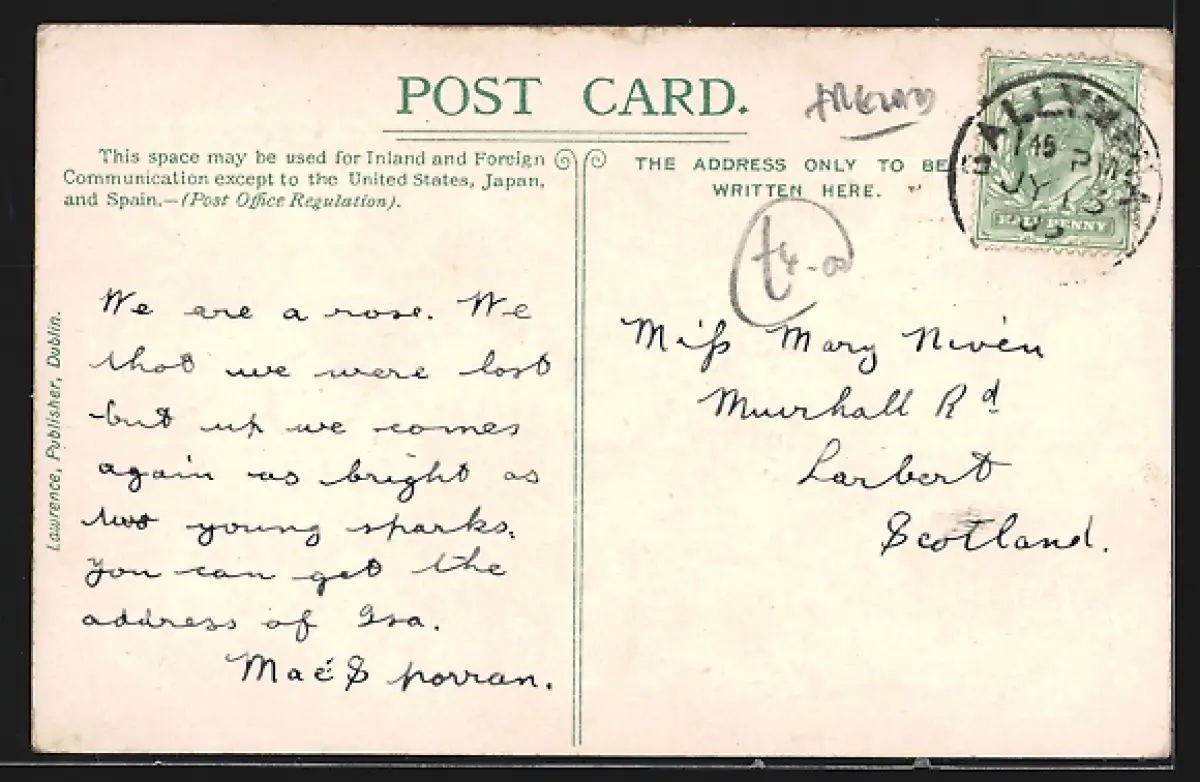 POST CARD.
IRELAND
This space may be used for Inland and Foreign
Communication except to the United States, Japan,
and Spain.—(Post Office Regulation).
THE ADDRESS ONLY TO BE
WRITTEN HERE.
1 45 PM
JY 13
HALFPENNY
£4-00
We are a rose. We
that we were lost
but up we comes
again as bright as
two young sparks.
You can get the
address of Isa.
Mac Sporran.
Miss Mary Niven
Muirhall Rd
Larbert
Scotland.
Lawrence, Publisher, Dublin.